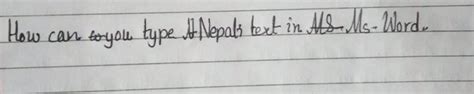 How can you type Nepali text in Ms-Word.